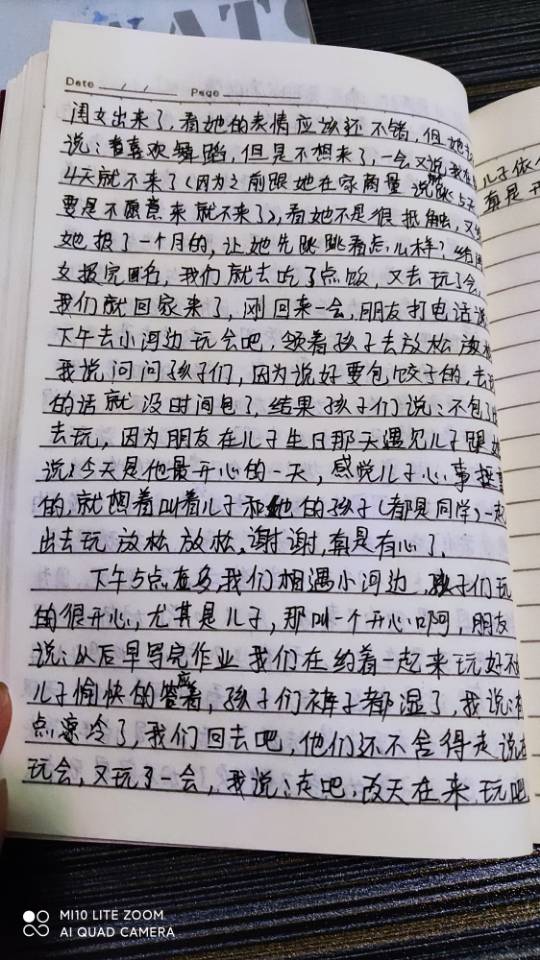 Date / / Page
闺女出来了,看她的表情应该还不错,但她
说:喜欢舞蹈,但是不想来了,一会又说我在
4天就不来了(因为之前跟她在家商量说跳5天
要是不愿意来就不来了),看她不是很抵触,又给
她报了一个月的,让她先跳跳看怎么样?结
女报完名,我们就去吃了点饭,又去玩了会
我们就回家来了,刚回来一会,朋友打电话说
下午去小河边玩会吧,领着孩子去放松放松
我说问问孩子们,因为说好要包饺子的,去
的话就没时间包了,结果孩子们说:不包了
去玩,因为朋友在儿子生日那天遇见儿子跟她
说:今天是他最开心的一天,感觉儿子心事挺重
的,就想着叫着儿子和她的孩子(都是同学)一起
出去玩放松放松,谢谢,真是有心了.
下午5点左右,我们相遇小河边,孩子们玩
的很开心,尤其是儿子,那叫一个开心啊,朋友
说:以后早写完作业我们在约着一起来玩好不
儿子愉快的答应着,孩子们裤子都湿了,我说:有
点冷了,我们回去吧,他们还不舍得走说在
玩会,又玩了一会,我说:走吧,改天在来玩吧
儿子依
真是开
MI10 LITE ZOOM
AI QUAD CAMERA